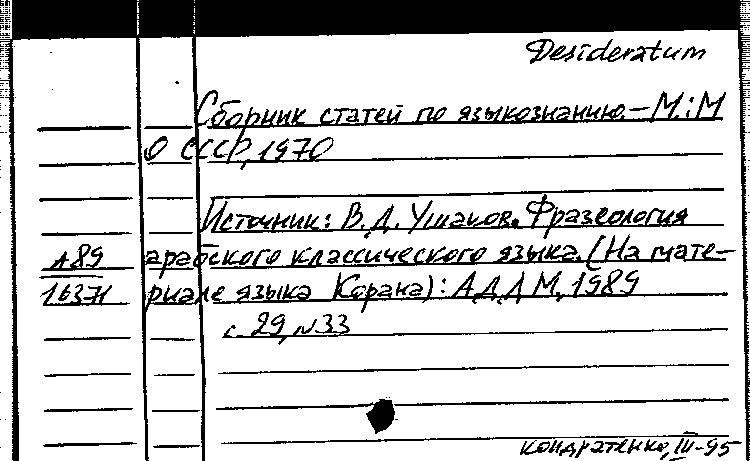 Desideratum
Сборник статей по языкознанию.—М.: М
О СССР, 1970
Источник: В.Д. Ушаков. Фразеология
л89 арабского классического языка. (На мате-
16371 риале языка Корана): А.Д.Д М, 1989
с. 29, N33
Кондратенко, III-95